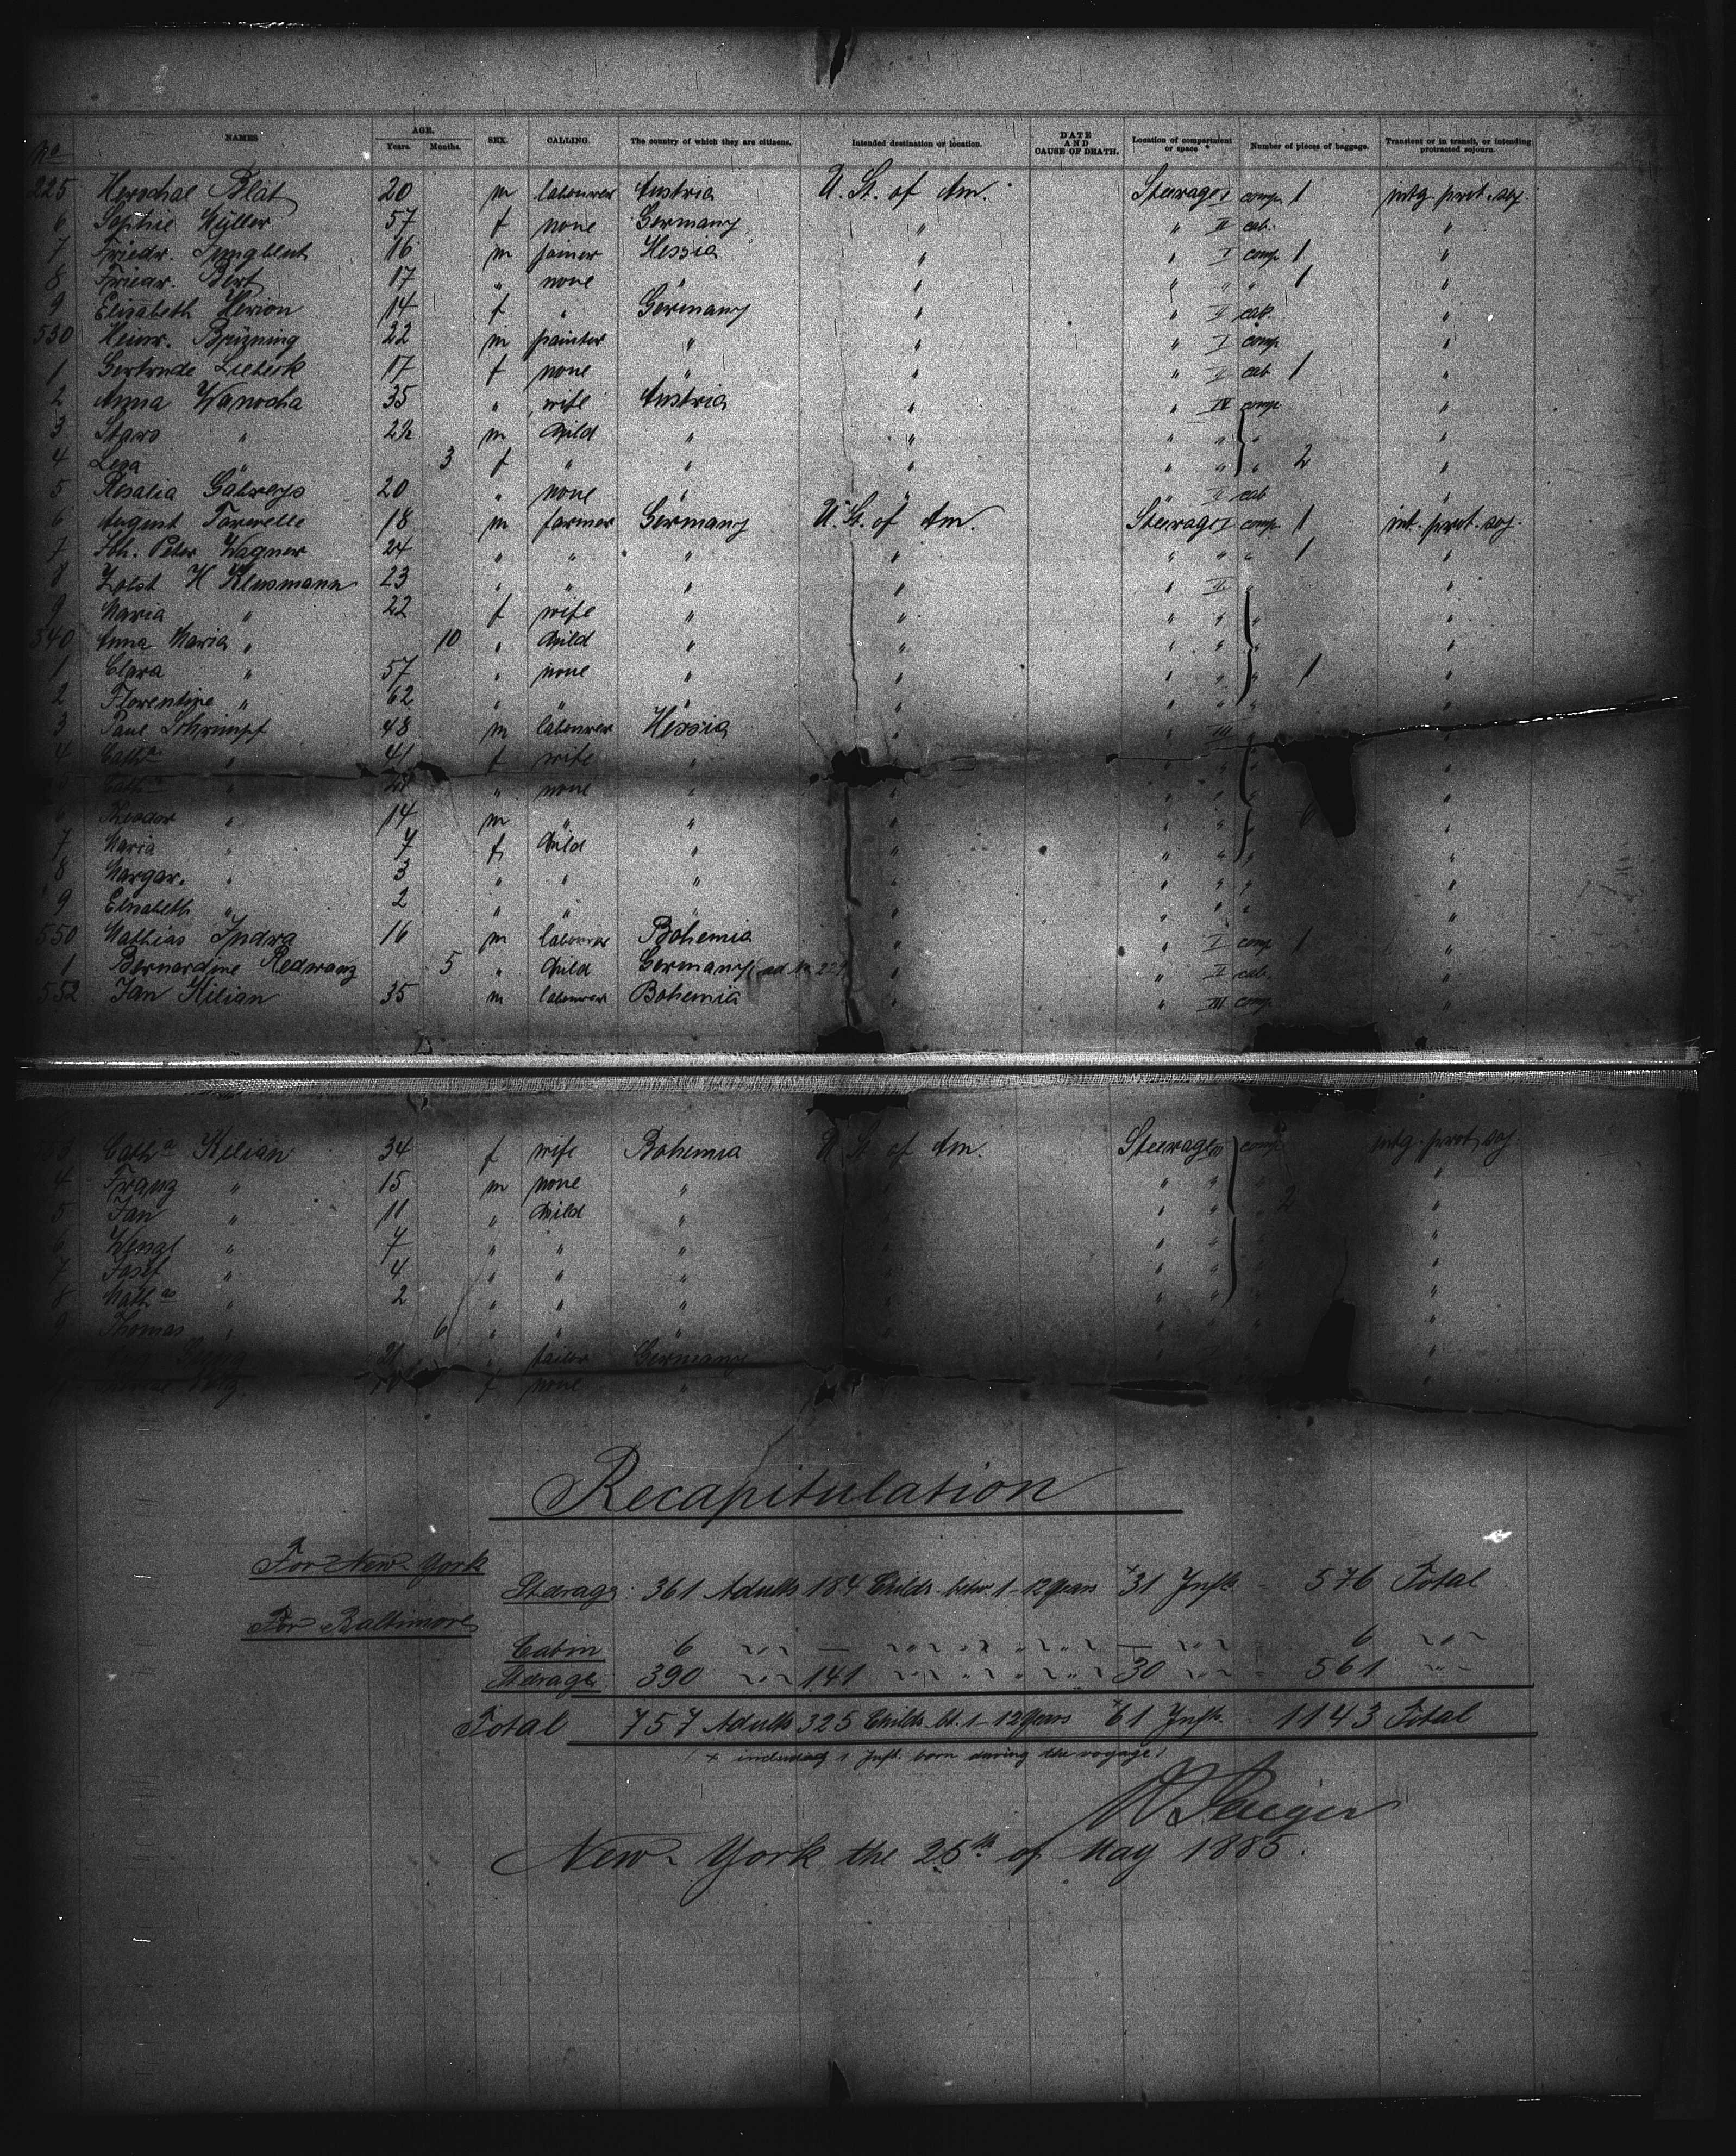 No
NAMES
AGE.
Years. Months.
SEX.
CALLING.
The country of which they are citizens.
Intended destination or location.
DATE AND CAUSE OF DEATH.
Location of compartment or space
Number of pieces of baggage.
Transient or in transit, or intending protracted sojourn.
225 Herschal Blat 20 m labourer Austria U. St. of Am. Steerage I comp 1 intg. prot. soj.
6 Sophie Müller 57 f none Germany " " II cab. "
7 Friedr. Jungblut 16 m joiner Hessia " " I comp 1 "
8 Friedr. Bert 17 " none " " " " " 1 "
9 Elisabeth Herion 14 f " Germany " " II cab. "
530 Heinr. Brüning 22 m painter " " " I comp "
1 Gertrude Liebeck 17 f none " " " II cab 1 "
2 Anna Wanocha 35 " wife Austria " " IV comp "
3 " 2½ m child " " " " " "
4 " 3 f " " " " " " 2 "
5 Rosalia 20 " none " " " II cab "
6 August Tarwelle 18 m farmer Germany U. St. of Am. Steerage I comp 1 int. prot. soj.
7 Joh. Peter Wagner 24 " " " " " " " 1 "
8 H Klusmann 23 " " " " " II " "
9 Maria " 22 f wife " " " " " "
540 Anna Maria " 10 " child " " " " " "
1 Clara " 57 " none " " " " " 1 "
2 Florentine " 62 " " " " " " " "
3 Paul Schrimpf 48 m labourer Hessia " " III " "
4 Cath.a " 41 f wife " " " " "
" " none " " " " "
6 Theodor " 14 m " " " " " 6 "
7 Maria " 7 f child " " " " " "
8 Margar. " 3 " " " " " " " "
9 Elisabeth " 2 " " " " " " " "
550 Mathias Indra 16 m labourer Bohemia " " I comp 1 "
1 Bernardine Redwanz 5 " child Germany (ad No 229) " " II cab. "
552 Jan Kilian 35 m labourer Bohemia " " III comp "
Cath.a Kilian 34 f wife Bohemia U St of Am. Steerage III comp intg. prot. soj.
4 Franz " 15 m none " " " "
5 Jan " 11 " child " " " 2 "
6 Wenzl " 7 " " " " " "
7 Josef " 4 " " " " " "
8 Math.as " 2 " " " " " "
9 Thomas " 6 " " " "
21 " tailor Germany "
f none " "
Recapitulation
For New-York
Steerage: 361 Adults 184 Childs. betw. 1-12 years × 31 Inft. - 576 Total
For Baltimore
Cabin 6 " — " — " 6 "
Steerage 390 " 141 " 30 " - 561 "
Total 757 Adults 325 Childs. bt. 1-12 years × 61 Inft. - 1143 Total
(× including 1 Inft. born during the voyage)
New-York, the 25th of May 1885.